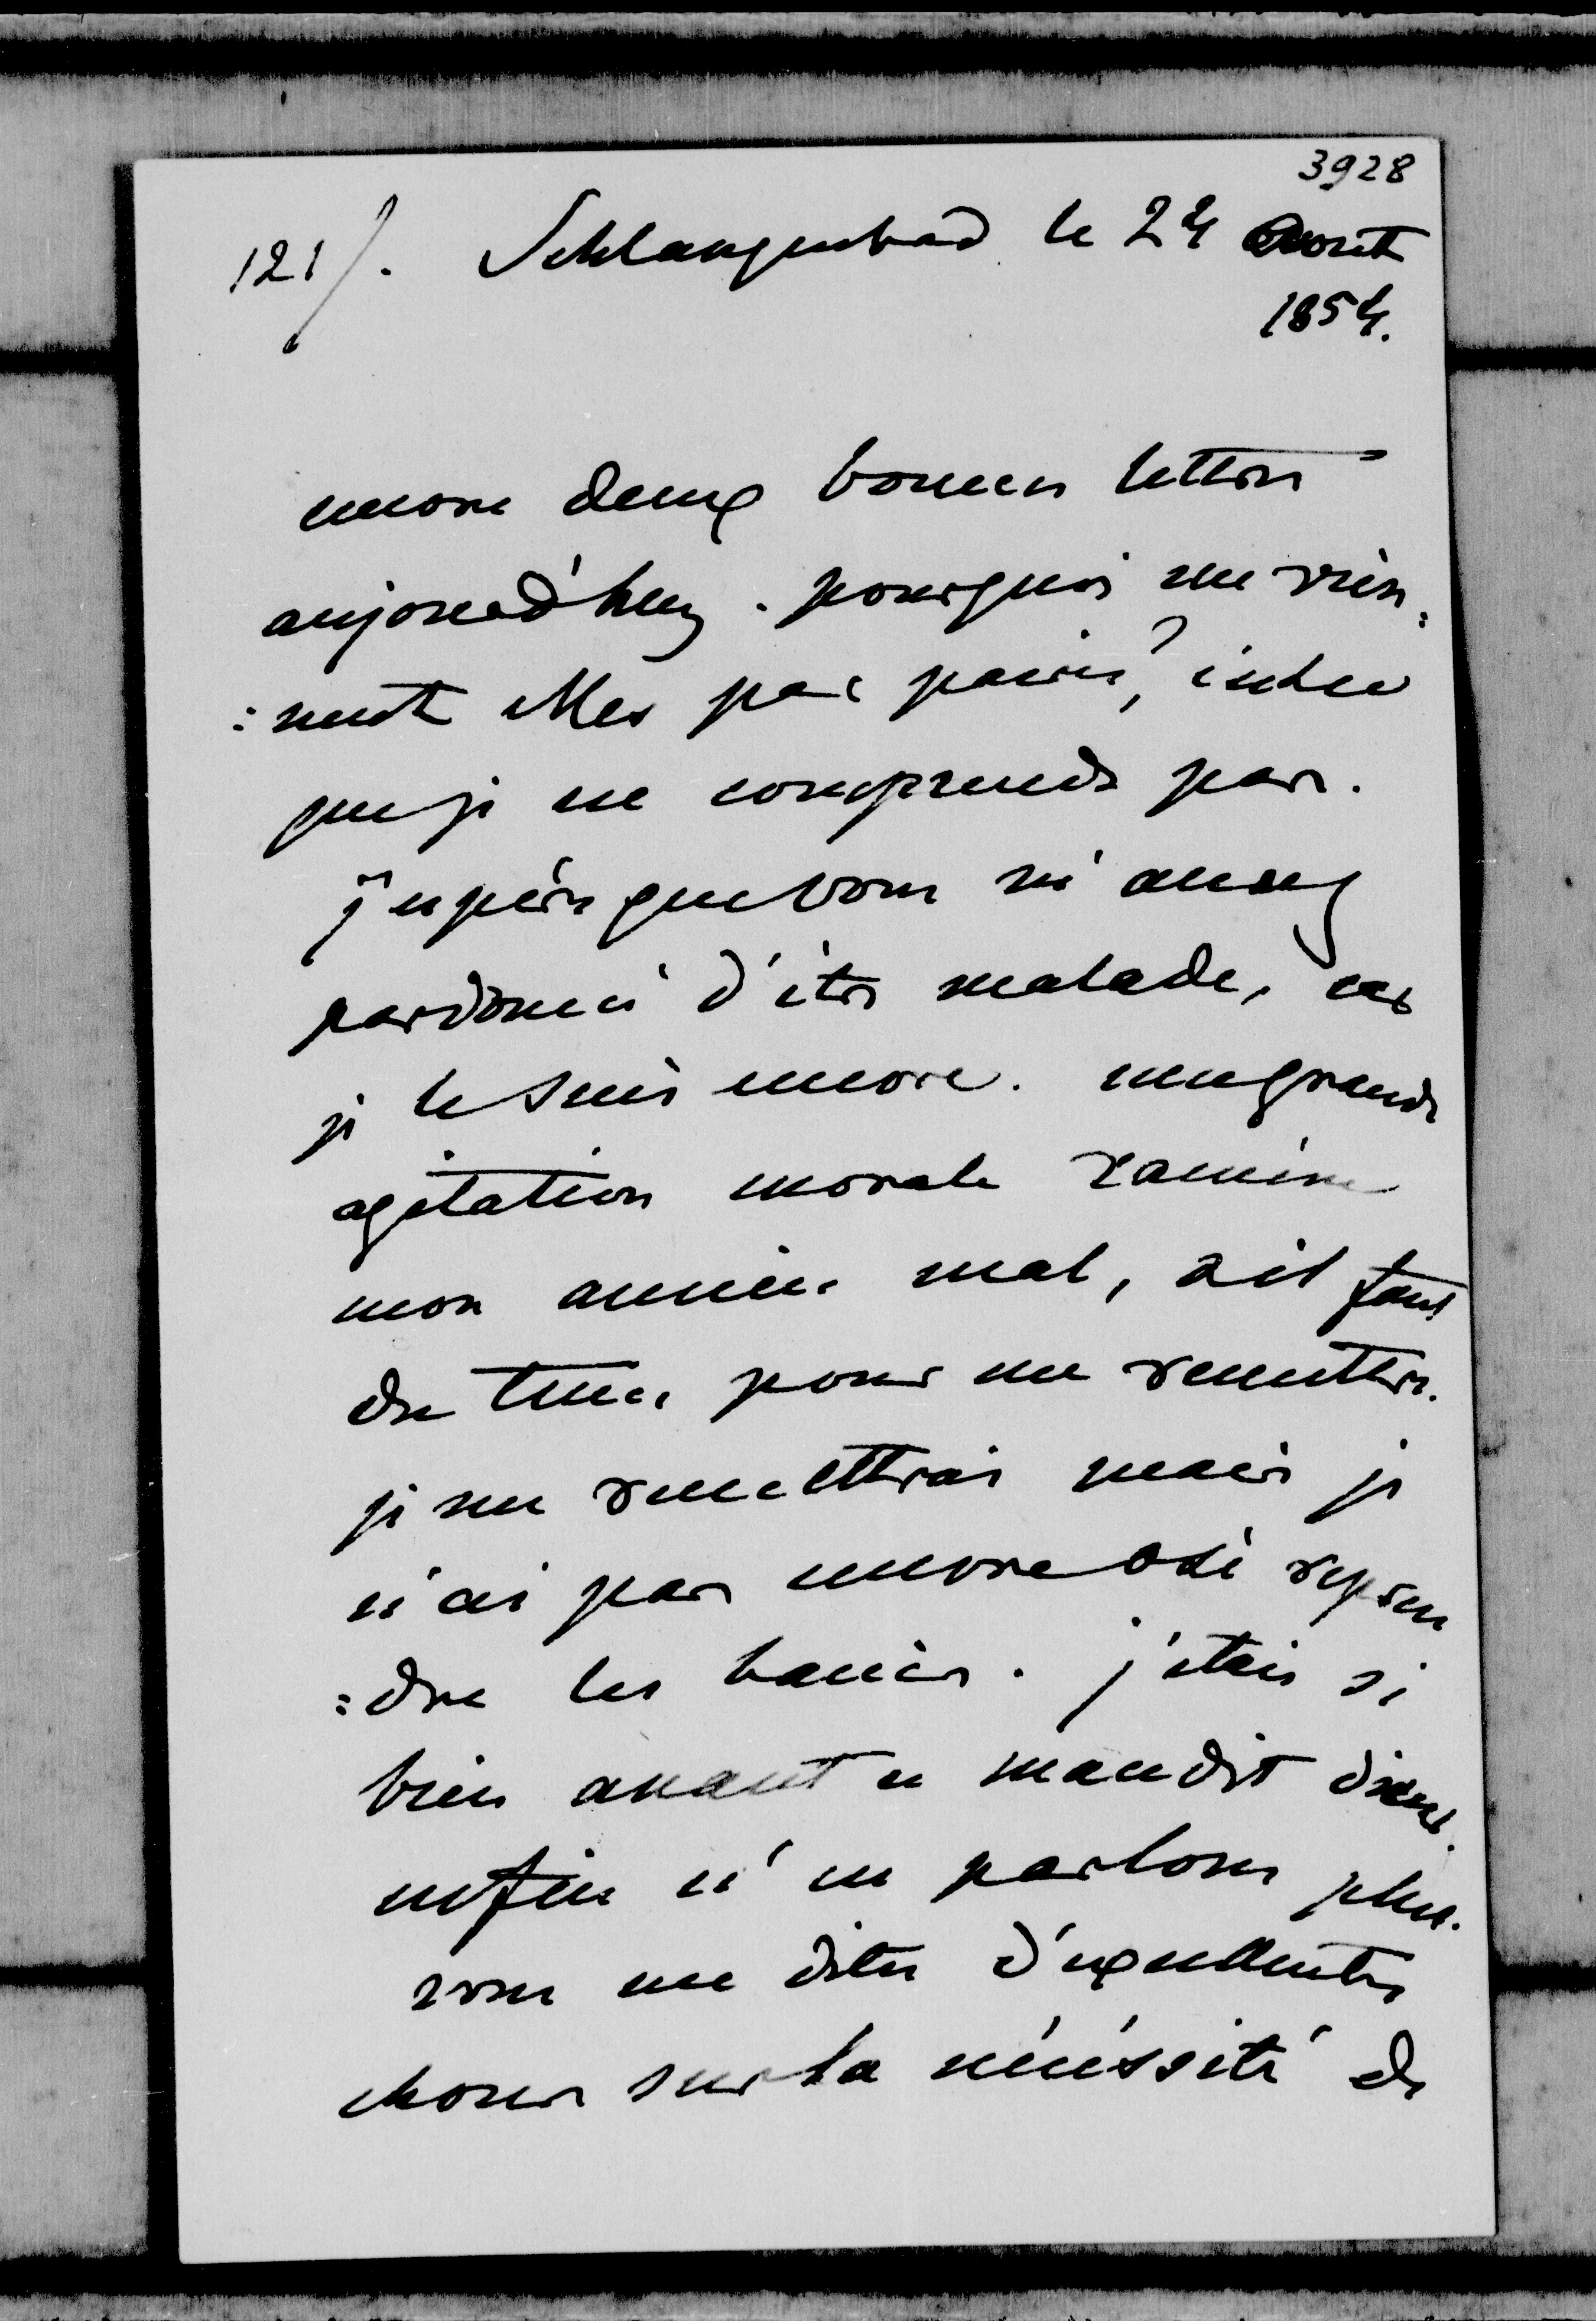 3928
121/. Schlangenbad le 24 Aout
1854.
encore deux bonnes lettres
aujourd'huy. pourquoi me vien=
=nent elles par paires? c'est ce
que je ne comprends pas.
j'espère que vous m'avez
pardonné d'être malade, car
je le suis encore. une grande
agitation morale ramène
mon ancien mal, & il faut
du tems pour me remettre.
je me remettrai mais je
n'ai pas encore osé repren
=dre les bains. j'étais si
bien avant ce maudit diner.
enfin n'en parlons plus.
vous me dites d'excellentes
choses sur la nécéssité de